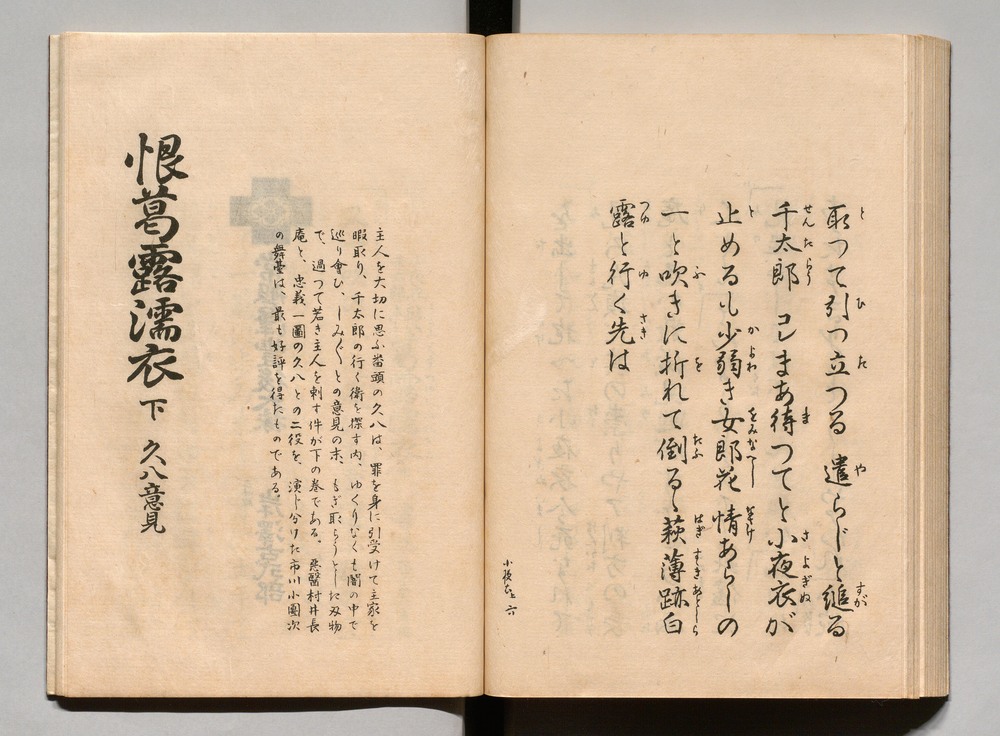 取つて引つ立つる　遣らじと縋る
千太郎　コレまあ待つてと小夜衣が
止めるも少弱き女郎花　情あらしの
一と吹きに折れて倒るゝ萩薄跡白
露と行く先は
小夜衣上 六
主人を大切に思ふ番頭の久八は、罪を身に引受けて主家を
暇取り、千太郎の行く衛を探す内、ゆくりなくも闇の中で
巡り會ひ、しみ〴〵との意見の末、もぎ取らうとした刃物
で、過つて若き主人を刺す件が下の巻である。悪醫村井長
庵と、忠義一圖の久八との二役を、演じ分けた市川小團次
の舞臺は、最も好評を得たものである。
恨葛露濡衣 下 久八意見